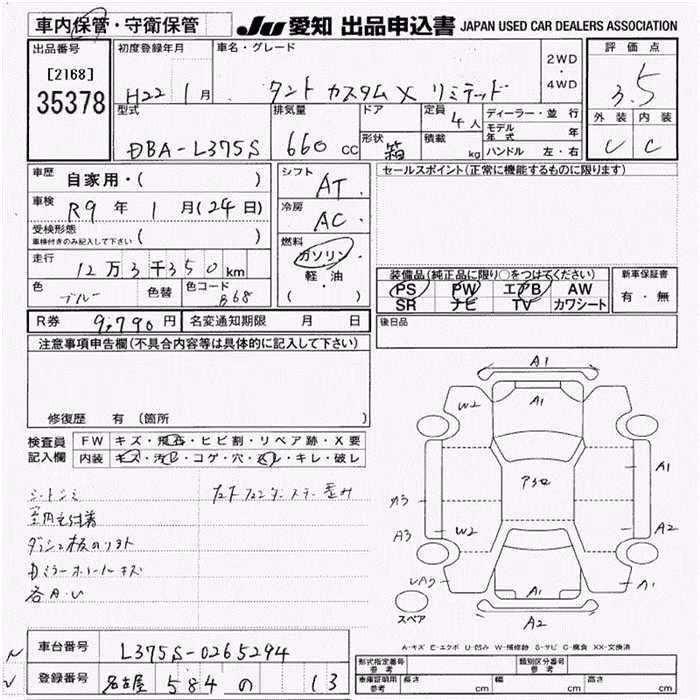 車内保管・守衛保管 JU 愛知 出品申込書 JAPAN USED CAR DEALERS ASSOCIATION
出品番号 初度登録年月 車名・グレード 2WD・4WD 評価点
[2168] H22 1月 タント カスタム X リミテッド 3.5
35378 型式 排気量 ドア 定員 4人 ディーラー・並行 外装 内装
DBA-L375S 660cc 形状 箱 積載 kg モデル年式 年 C
ハンドル 左・右
車歴 自家用・( ) シフト AT セールスポイント(正常に機能するものに限ります)
車検 R9年 1月(24日) 冷房 AC
受検形態 車検付きのみ記入して下さい ( ) 燃料
走行 12万3千350km ガソリン 装備品(純正品に限り○をつけてください) 新車保証書
色 ブルー 色替 色コード B68 軽・油 PS PW エアB AW 有・無
( ) SR ナビ TV カワシート
R券 9,790円 名変通知期限 月 日 後日品
注意事項申告欄(不具合内容等は具体的に記入して下さい)
修復歴 有(箇所 )
検査員 FW キズ・飛石・ヒビ割・リペア跡・X要
記入欄 内装 キズ・汚レ・コゲ・穴・スレ・キレ・破レ
シートシミ
各A・U
A1
W2 A1
A1
A3 W2 A2
A1 A1
スペア A2
A-キズ E-エクボ U-凹み W-補修跡 S-サビ C-腐食 XX-交換済
車台番号 L375S-0265294
登録番号 名古屋 584 の 13
形式指定番号 参考 類別区分番号 参考
車庫証明用 参考 長さ cm 幅 cm 高さ cm